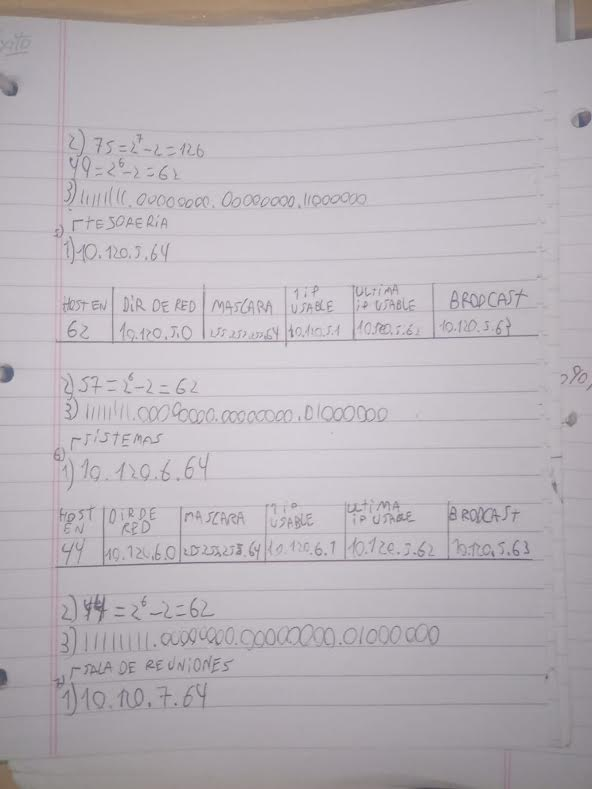 2) 75=2⁷-2=126
49=2⁶-2=62
3) 11111111.00000000.00000000.11000000
5) TESORERIA
1) 10.120.5.64
HOST EN | DIR DE RED | MASCARA | 1 iP USABLE | ULTIMA iP USABLE | BRODCAST
62 | 10.120.5.0 | 255.255.255.64 | 10.120.5.1 | 10.120.5.62 | 10.120.5.63
2) 57=2⁶-2=62
3) 11111111.00000000.00000000.01000000
6) SISTEMAS
1) 10.120.6.64
HOST EN | DIR DE RED | MASCARA | 1 iP USABLE | ULTIMA iP USABLE | BRODCAST
44 | 10.120.6.0 | 255.255.255.64 | 10.120.6.1 | 10.120.5.62 | 10.120.5.63
2) 44=2⁶-2=62
3) 11111111.00000000.00000000.01000000
7) SALA DE REUNIONES
1) 10.120.7.64